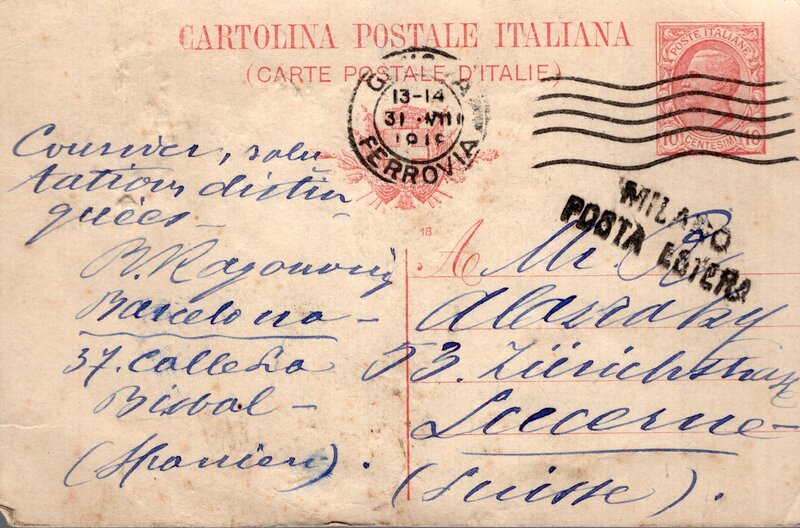 CARTOLINA POSTALE ITALIANA
(CARTE POSTALE D'ITALIE)
POSTE ITALIANE
10 CENTESIMI 10
13-14
31 VIII
FERROVIA
MILANO
POSTA ESTERA
18
Courrier, salu
tations distin
guées -
Barcelona -
37. Calle La
Bisbal -
(Spanien).
A Mr. R.
53. Zürichstrasse
Lucerne -
(Suisse).